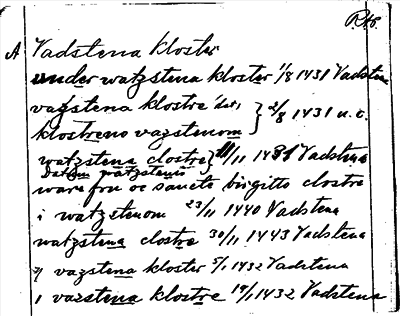 RAp.
A Vadstena kloster
under watzstena kloster 1/8 1431 Vadstena
vazstena klostre dat. } 2/8 1431 u.o.
klostreno vazstenom
watzstena clostre } 11/11 1431 Vadstena
Datum watzstenis
ware frv oc sancte birgitto clostre
i watzstenom 23/11 1440 Vadstena
watzstena clostre 30/11 1443 Vadstena
y vazstena kloster 5/1 1432 Vadstena
i vazstena klostre 19/1 1432 Vadstena